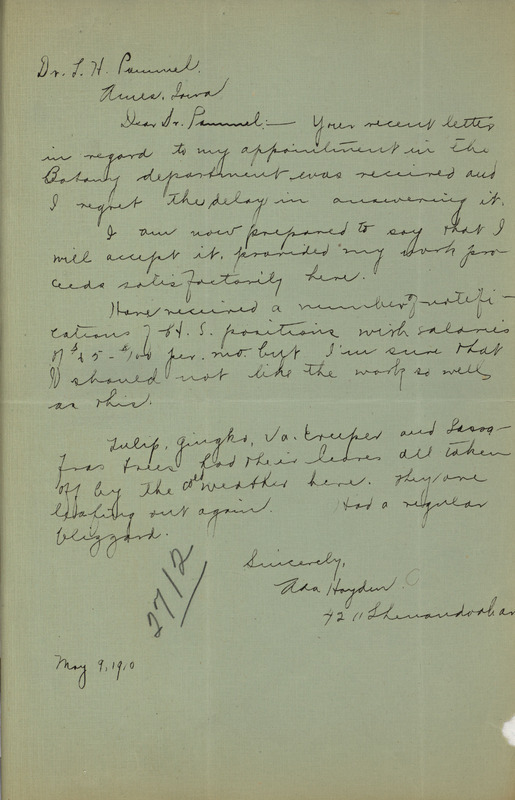 Dr. L. H. Pammel.
Ames, Iowa
Dear Dr. Pammel:— Your recent letter
in regard to my appointment in the
Botany department was received and
I regret the delay in answering it.
I am now prepared to say that I
will accept it, provided my work pro-
ceeds satisfactorily here.
Have received a number of notifi-
cations of H. S. positions with salaries
of $85-$100 per. mo. but I'm sure that
I should not like the work so well
as this.
Tulip, gingko, Va. creeper and Sassa-
fras trees had their leaves all taken
off by the cold weather here. They are
leafing out again. Had a regular
blizzard.
Sincerely,
Ada Hayden.
4211 Shenandoah av
2712
May 9, 1910